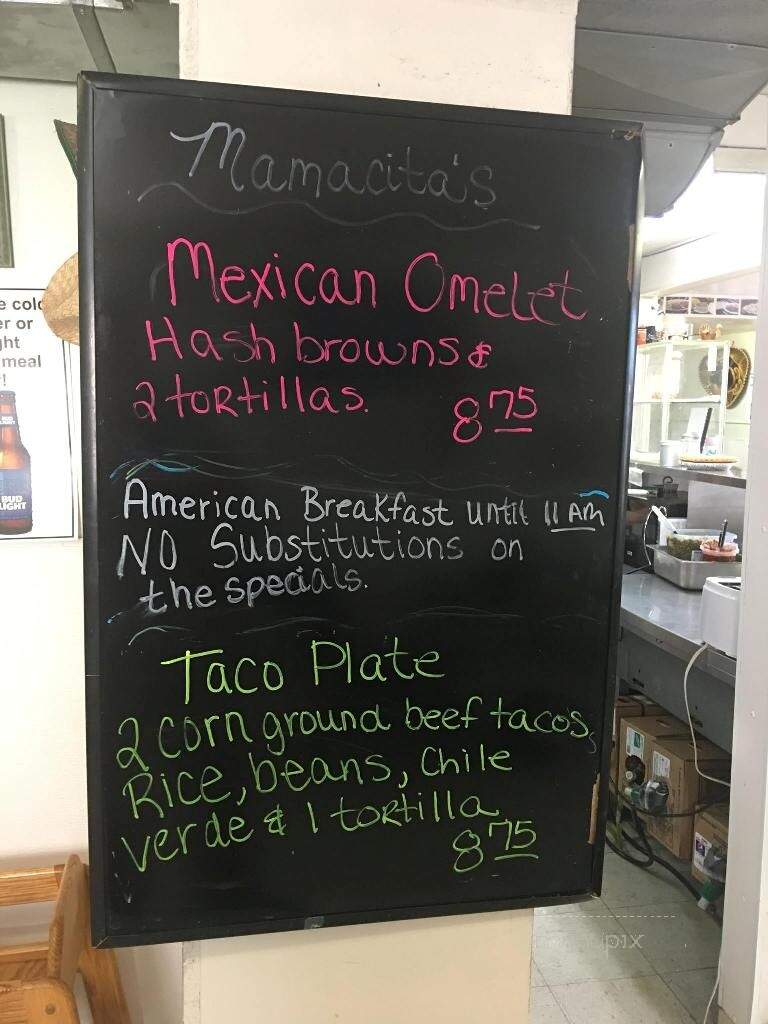 Mamacita's
Mexican Omelet
Hash browns &
2 tortillas. 8 75
American Breakfast until 11 AM
NO Substitutions on
the specials.
Taco Plate
2 corn ground beef tacos,
Rice, beans, chile
verde & 1 tortilla
8 75
e cold
er or
ght
meal
!
BUD
LIGHT